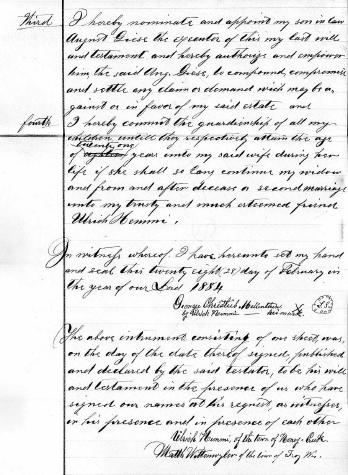 third I hereby nominate and appoint my son in law
August Giese the executor of this my last will
and testament and hereby authorize and empower
him the said Aug. Giese, to compound, compromise
and settle any claim or demand wich may be a,
gainst or in favor of my said estate and
fourth I hereby commit the guardienship of all my
children untill they respectively attain the age
twenty one
of eighteen years unto my said wife during her
life if she shall so long continue my widow
and from and after decease or second marriage
unto my trusty and much esteemed friend
Ulrich Hemmi,
In witness whereof I have hereunto set my hand
and seal this twenty eight, 28/ day of February in
the year of our Lord 1884
George Christlieb
by Ulrich Hemmi his mark X
The above instrument consisting of one sheet, was,
on the day of the date therof signed, published
and declared by the said testator, to be his will
and testament in the presence of us who have
signed our names at his request, as witnesses,
in his presence and in presence of each other
Ulrich Hemmi, of the town of Honey Creek
of the town of Troy Wis.